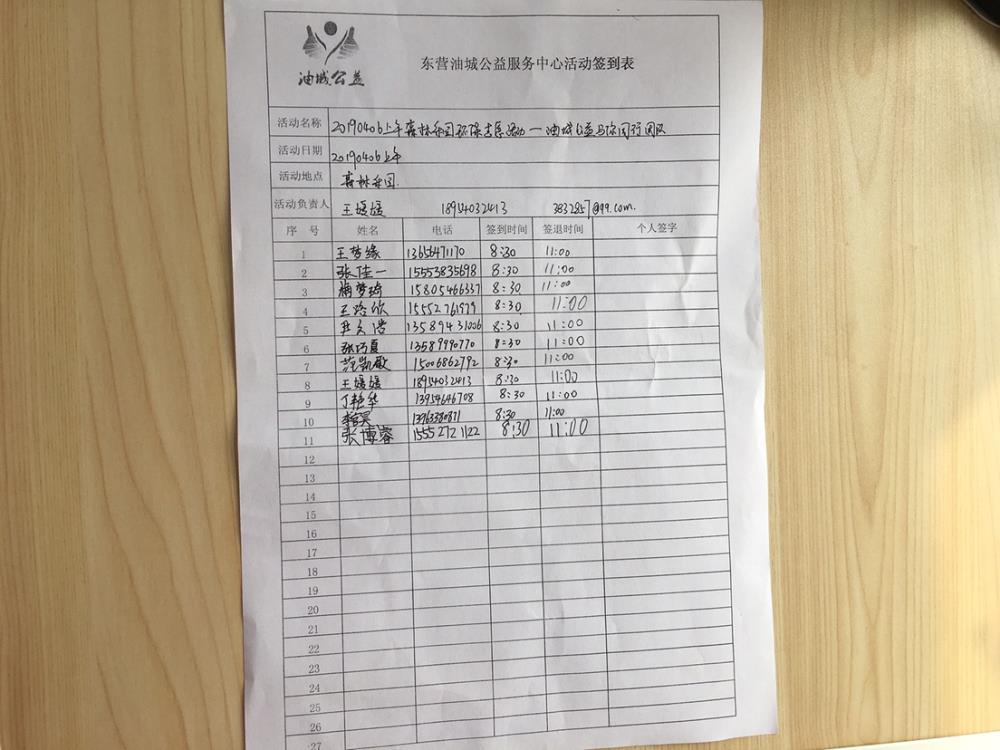 油城公益
东营油城公益服务中心活动签到表
活动名称 20190406上午森林公园环保志愿活动一油城公益与你同行团队
活动日期 20190406上午
活动地点 森林公园.
活动负责人 王媛媛 18954032413 3832857@qq.com.
序 号 姓名 电话 签到时间 签退时间 个人签字
1 王梦缘 13656471170 8:30 11:00
2 张佳一 15553835698 8:30 11:00
3 梦琦 15805466337 8:30 11:00
4 王路欣 15552761979 8:30 11:00
5 尹文浩 13589431006 8:30 11:00
6 张巧夏 13589990770 8:30 11:00
7 范凯敏 15006862792 8:30 11:00
8 王媛媛 18954032413 8:30 11:00
9 丁艳华 13954646708 8:30 11:00
10 8:30 11:00
11 张博睿 15552721122 8:30 11:00
12
13
14
15
16
17
18
19
20
21
22
23
24
25
26
27